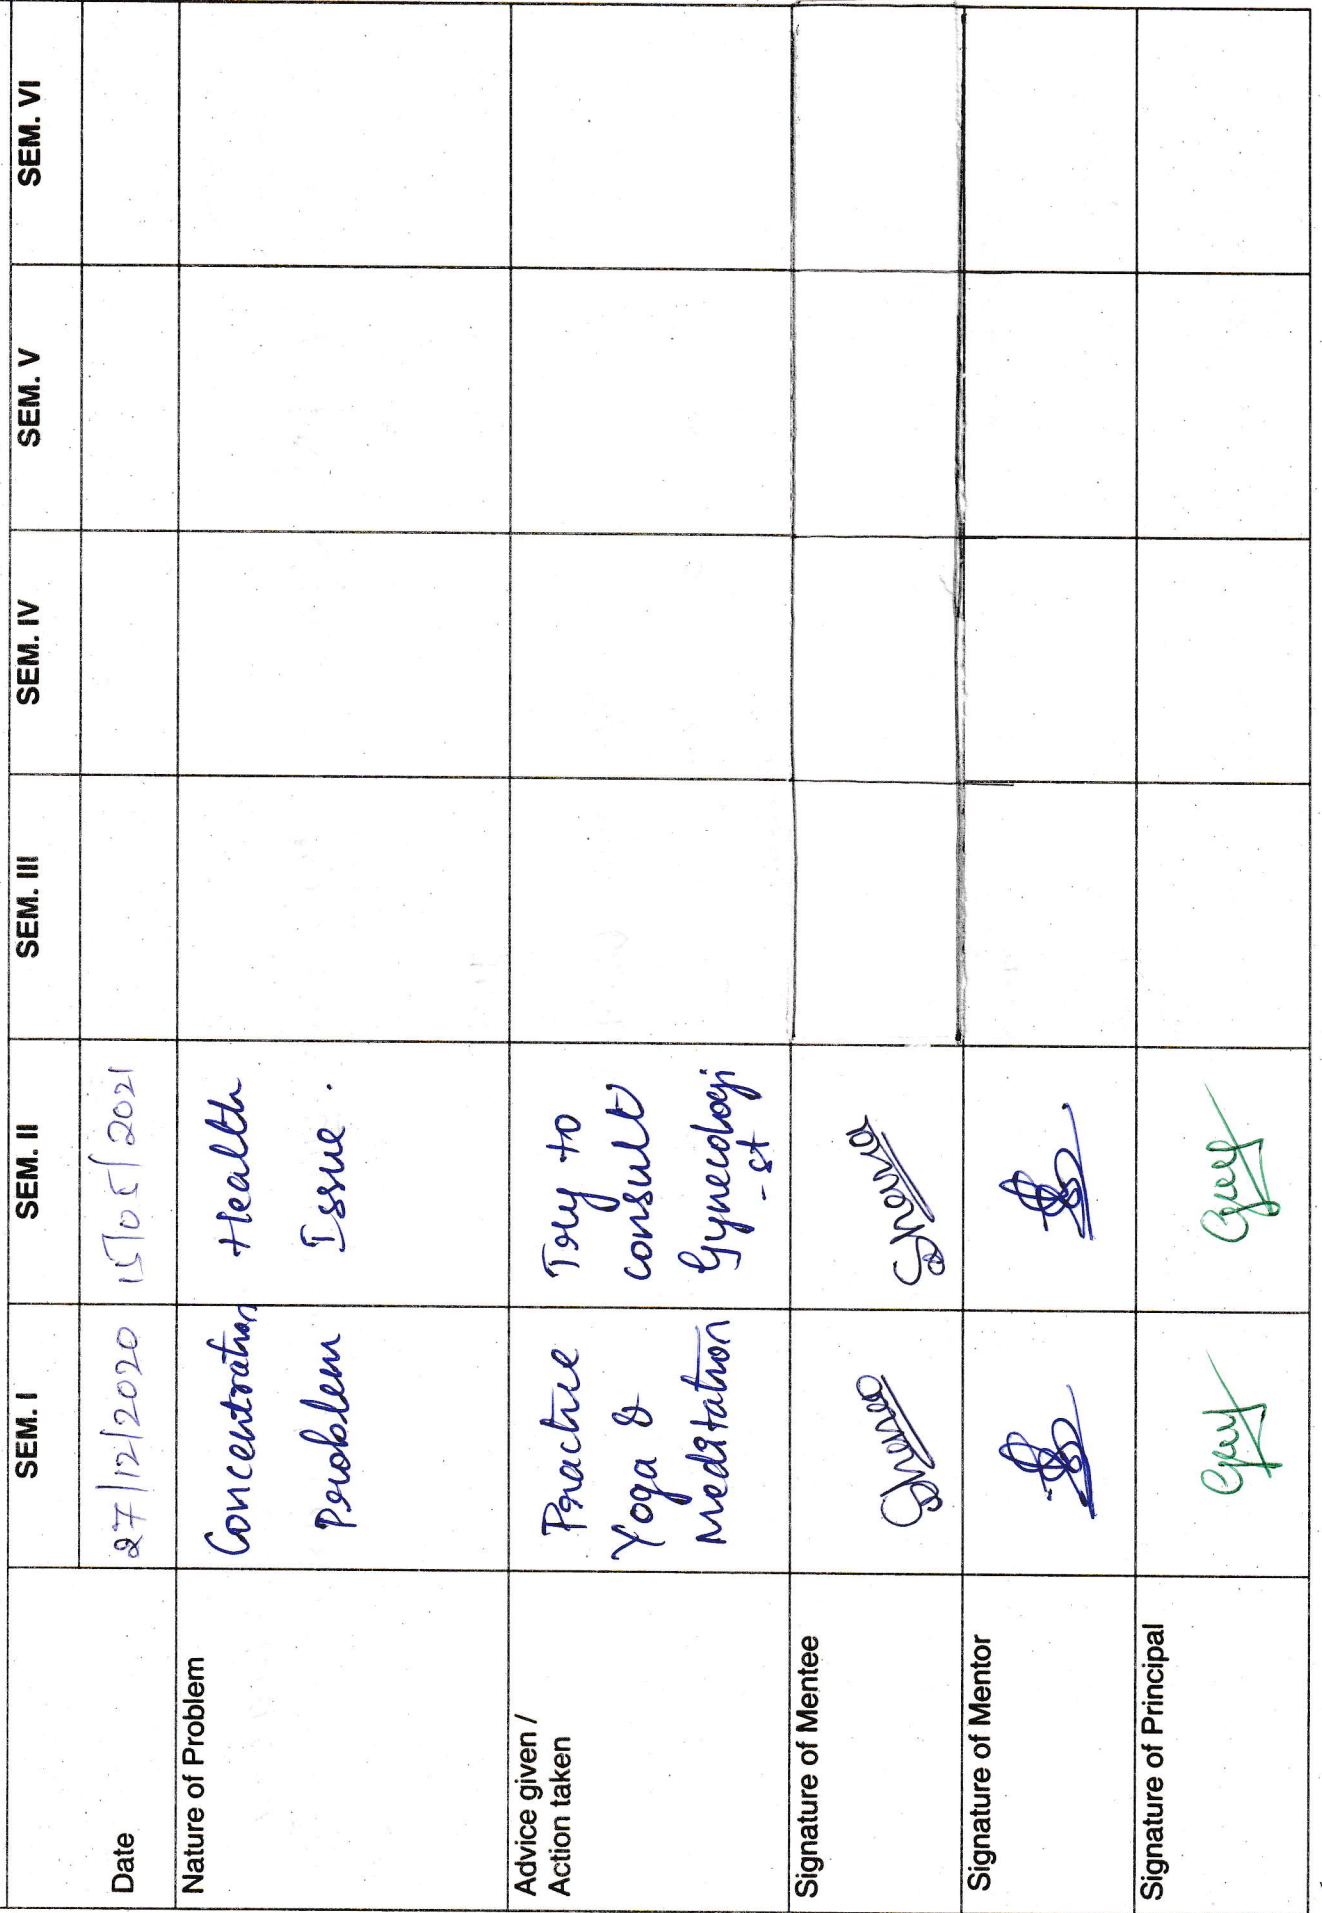 SEM. I SEM. II SEM. III SEM. IV SEM. V SEM. VI
Date 27/12/2020 15/05/2021
Nature of Problem
Concentration
Problem
Health
Issue.
Advice given /
Action taken
Practice
Yoga &
Meditation
Try to
consult
Gynecologi
-st
Signature of Mentee
Signature of Mentor
Signature of Principal